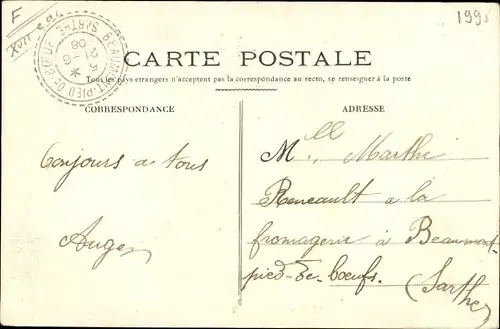 F
XVII eme
1995
BEAUMONT-PIED-DE-BŒUF * SARTHE
5
21-6
08
CARTE POSTALE
Tous les pays etrangers n'acceptent pas la correspondance au recto, se renseigner à la poste
CORRESPONDANCE
ADRESSE
Toujours a tous
Ange
Mlle Marthe
Reneault a la
fromagerie à Beaumont
pied-de-boeufs. (Sarthe)